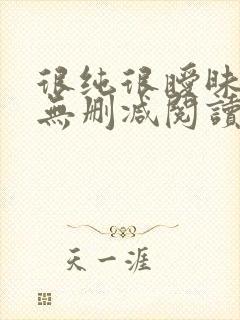 很纯很曖昧
無删减閱讀
天一涯